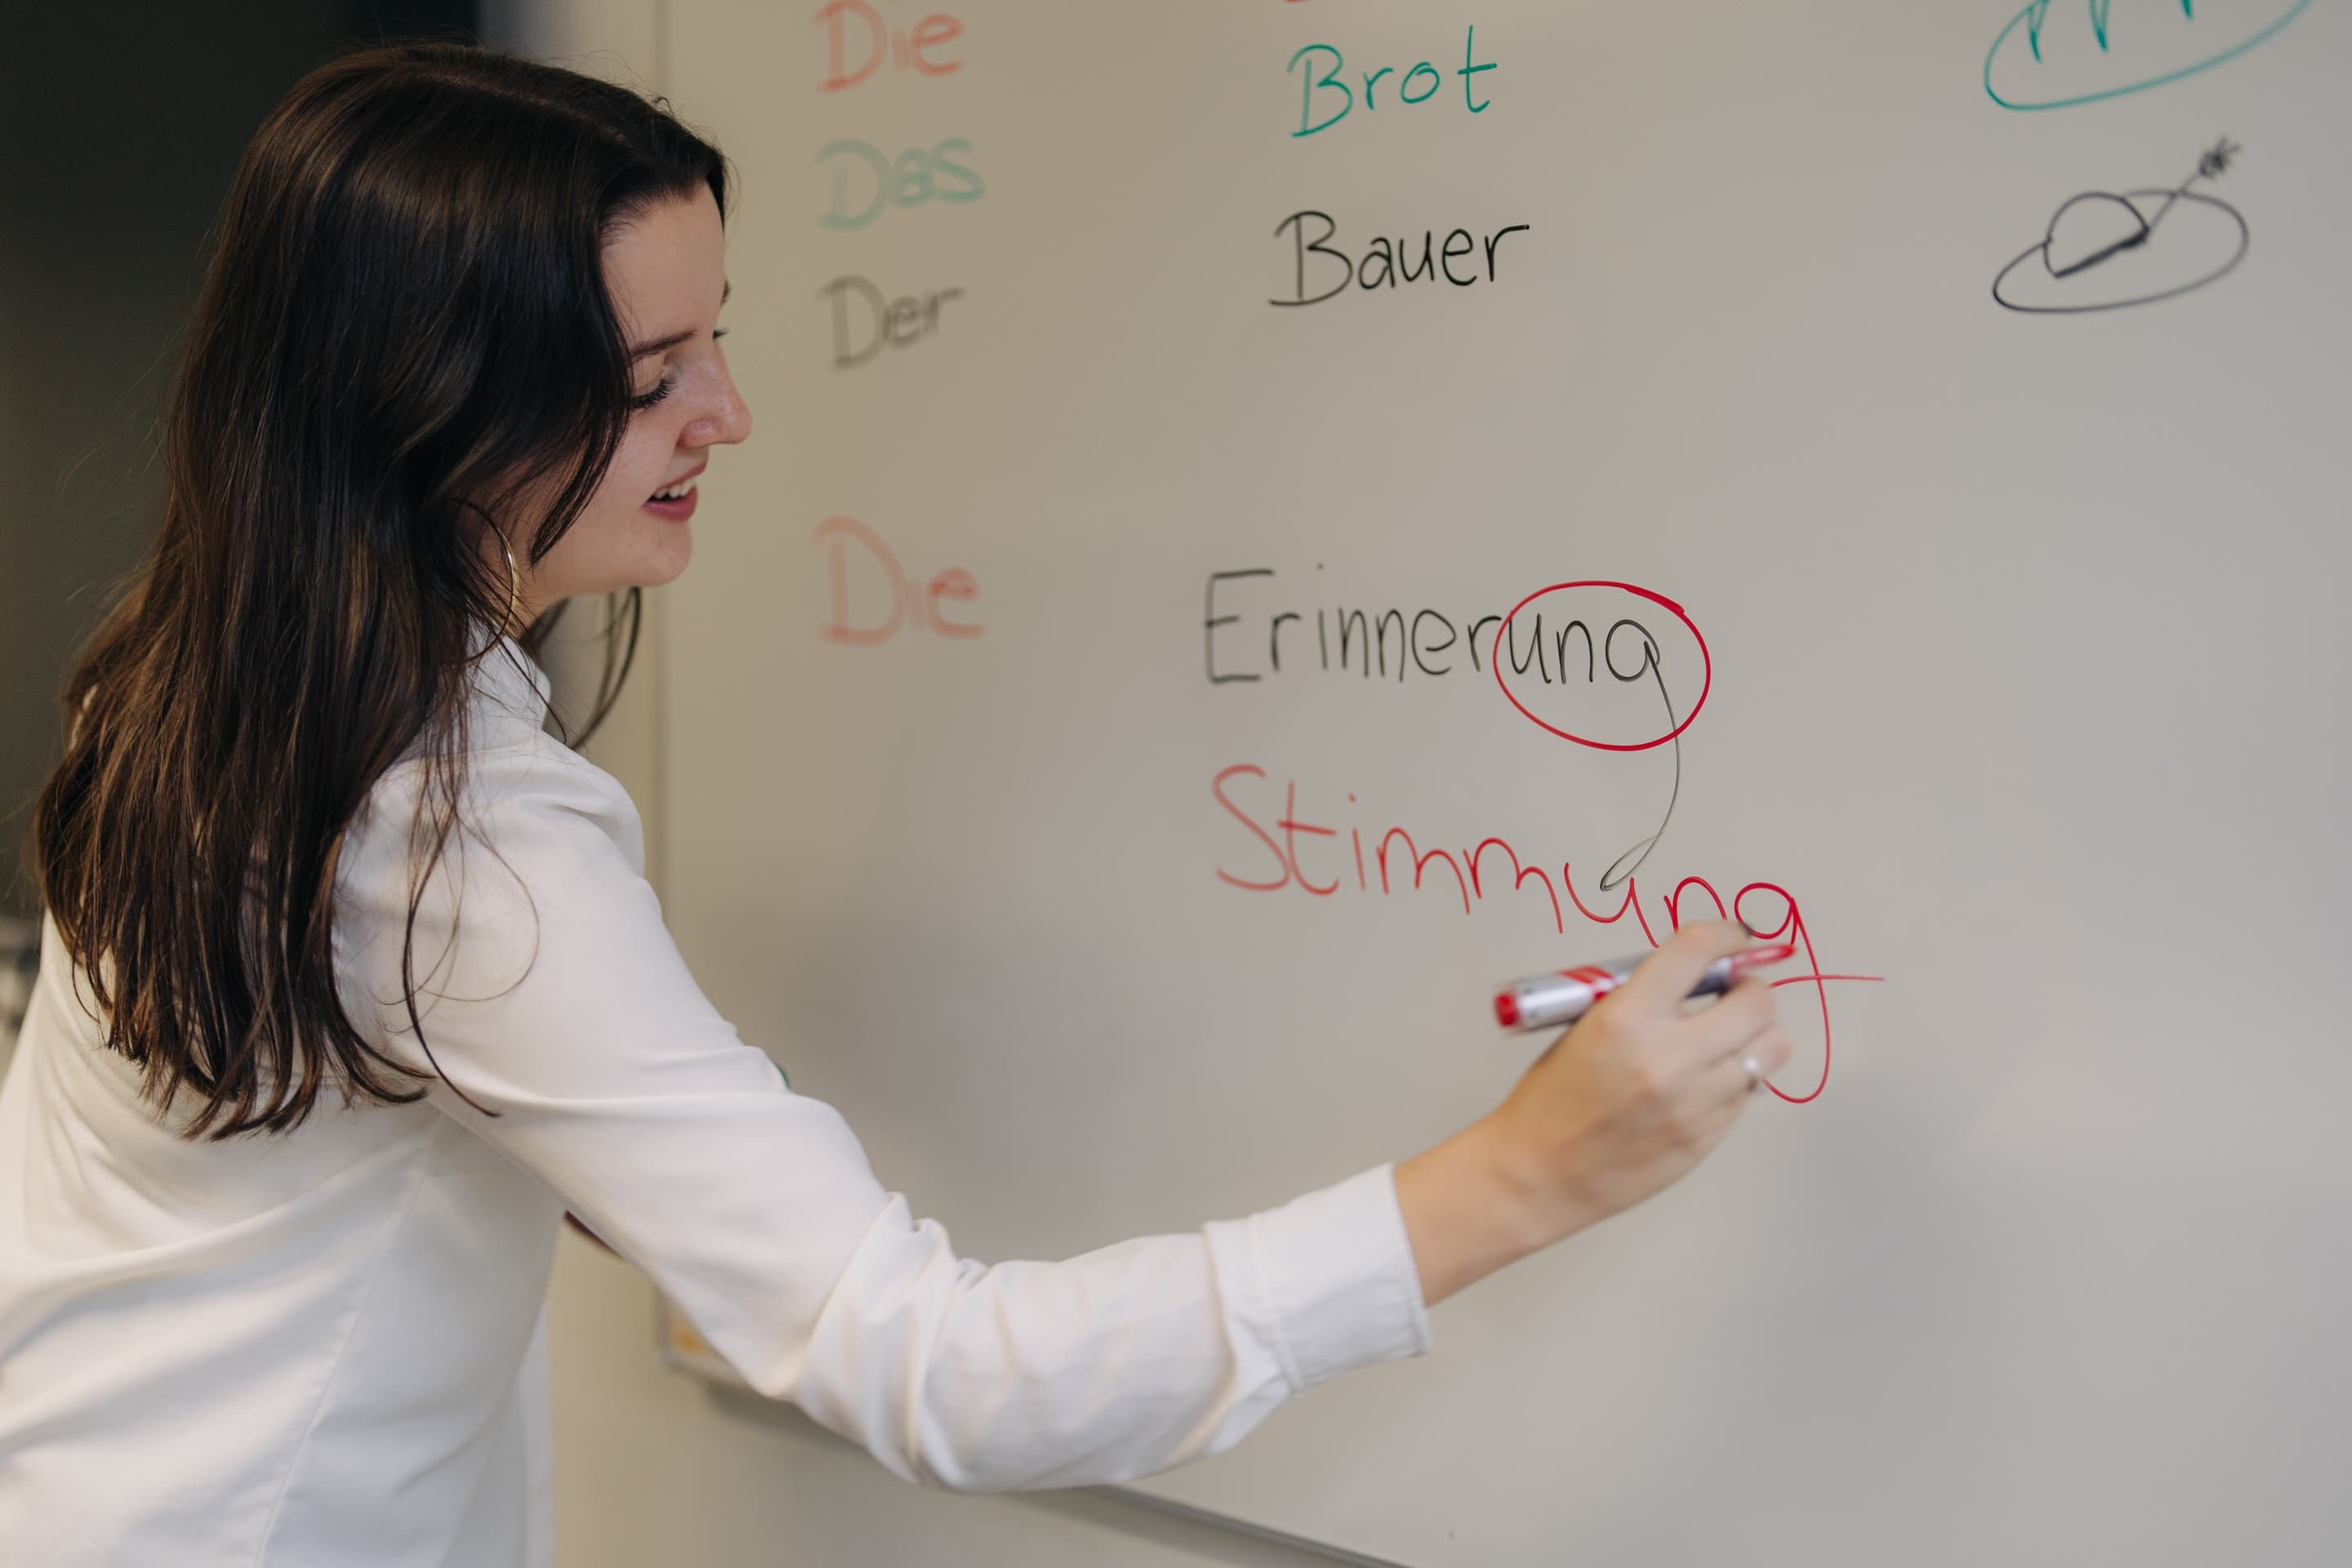 Die
Das Brot
Der Bauer
Die Erinnerung
Stimmung